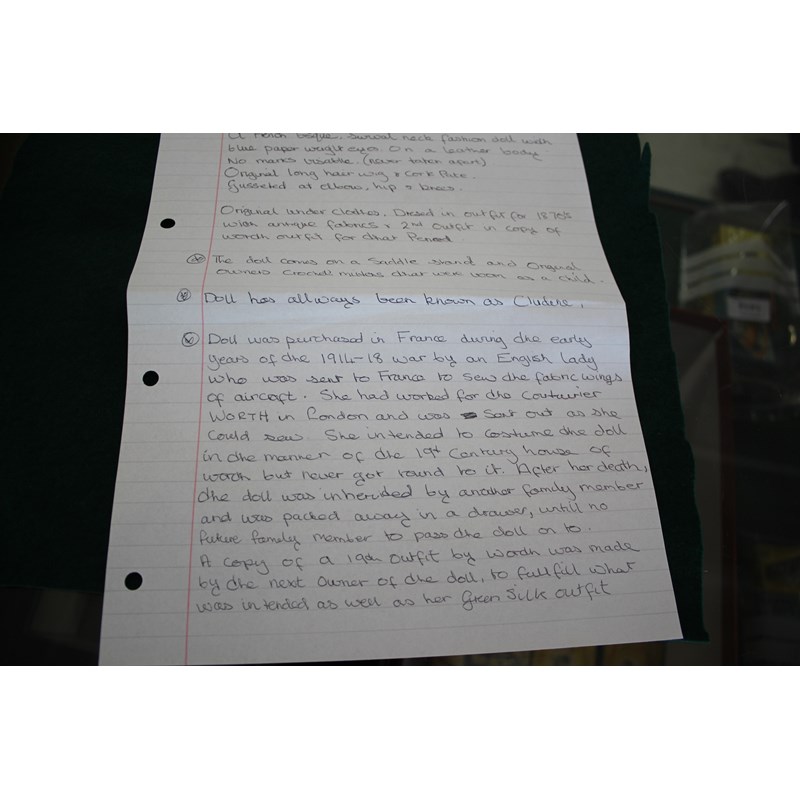 French bisque. Swival neck fashion doll with
blue paper weight eyes. On a leather body.
No marks visable. (never taken apart)
Original long hair wig & cork Pate.
Gusseted at elbow, hip & knees.
Original under clothes. Dressed in outfit for 1870's
with antique fabrics & 2nd outfit in copy of
worth outfit for that Period.
The doll comes on a Saddle stand and Original
owners Crochet mittens that were worn as a child.
Doll has allways been known as Cludine.
Doll was purchased in France during the early
years of the 1914-18 war by an English lady
who was sent to France to sew the fabric wings
of aircraft. She had worked for the Couturier
WORTH in London and was sent out as she
could sew. She intended to costume the doll
in the manner of the 19th Century house of
worth but never got round to it. After her death,
the doll was inherited by another family member
and was packed away in a drawer, until no
future family member to pass the doll on to.
A copy of a 19th outfit by worth was made
by the next owner of the doll, to fullfill what
was intended as well as her green silk outfit